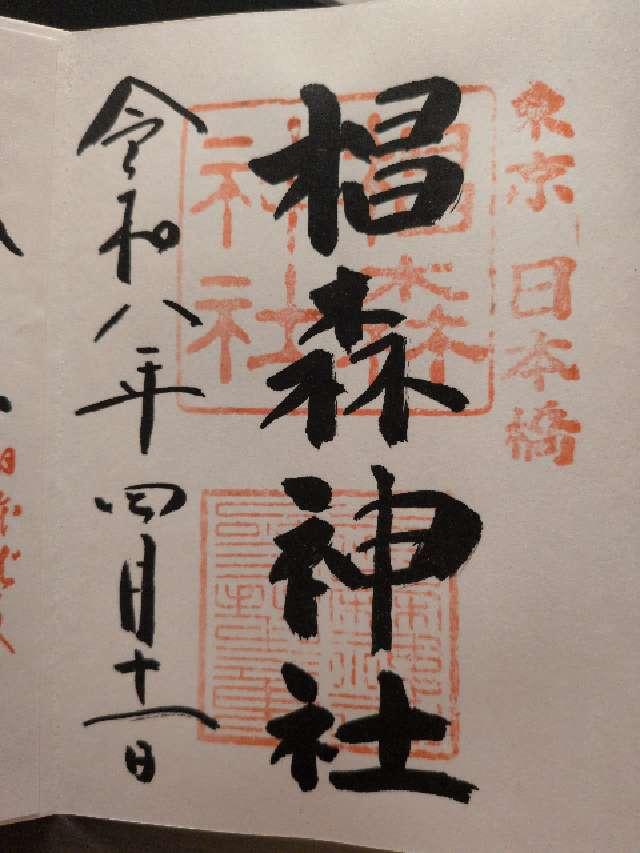 東京 日本橋
椙森神社
椙森
神社
令和八年四月十一日